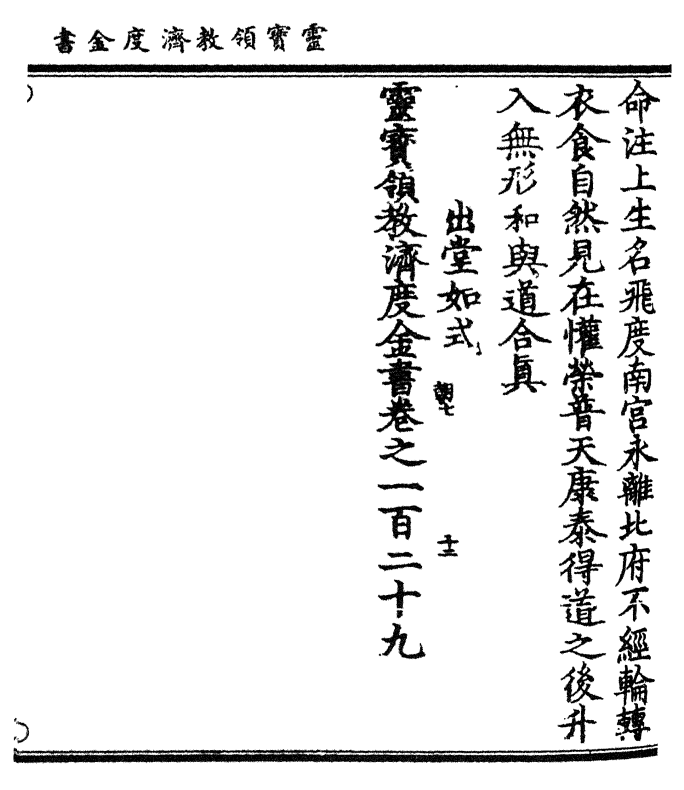 靈寶領教濟度金書
命注上生名飛度南宮永離北府不經輪轉
衣食自然見在懽榮普天康泰得道之後升
入無形和與道合眞
出堂如式
朝七
十三
靈寶領教濟度金書卷之一百二十九